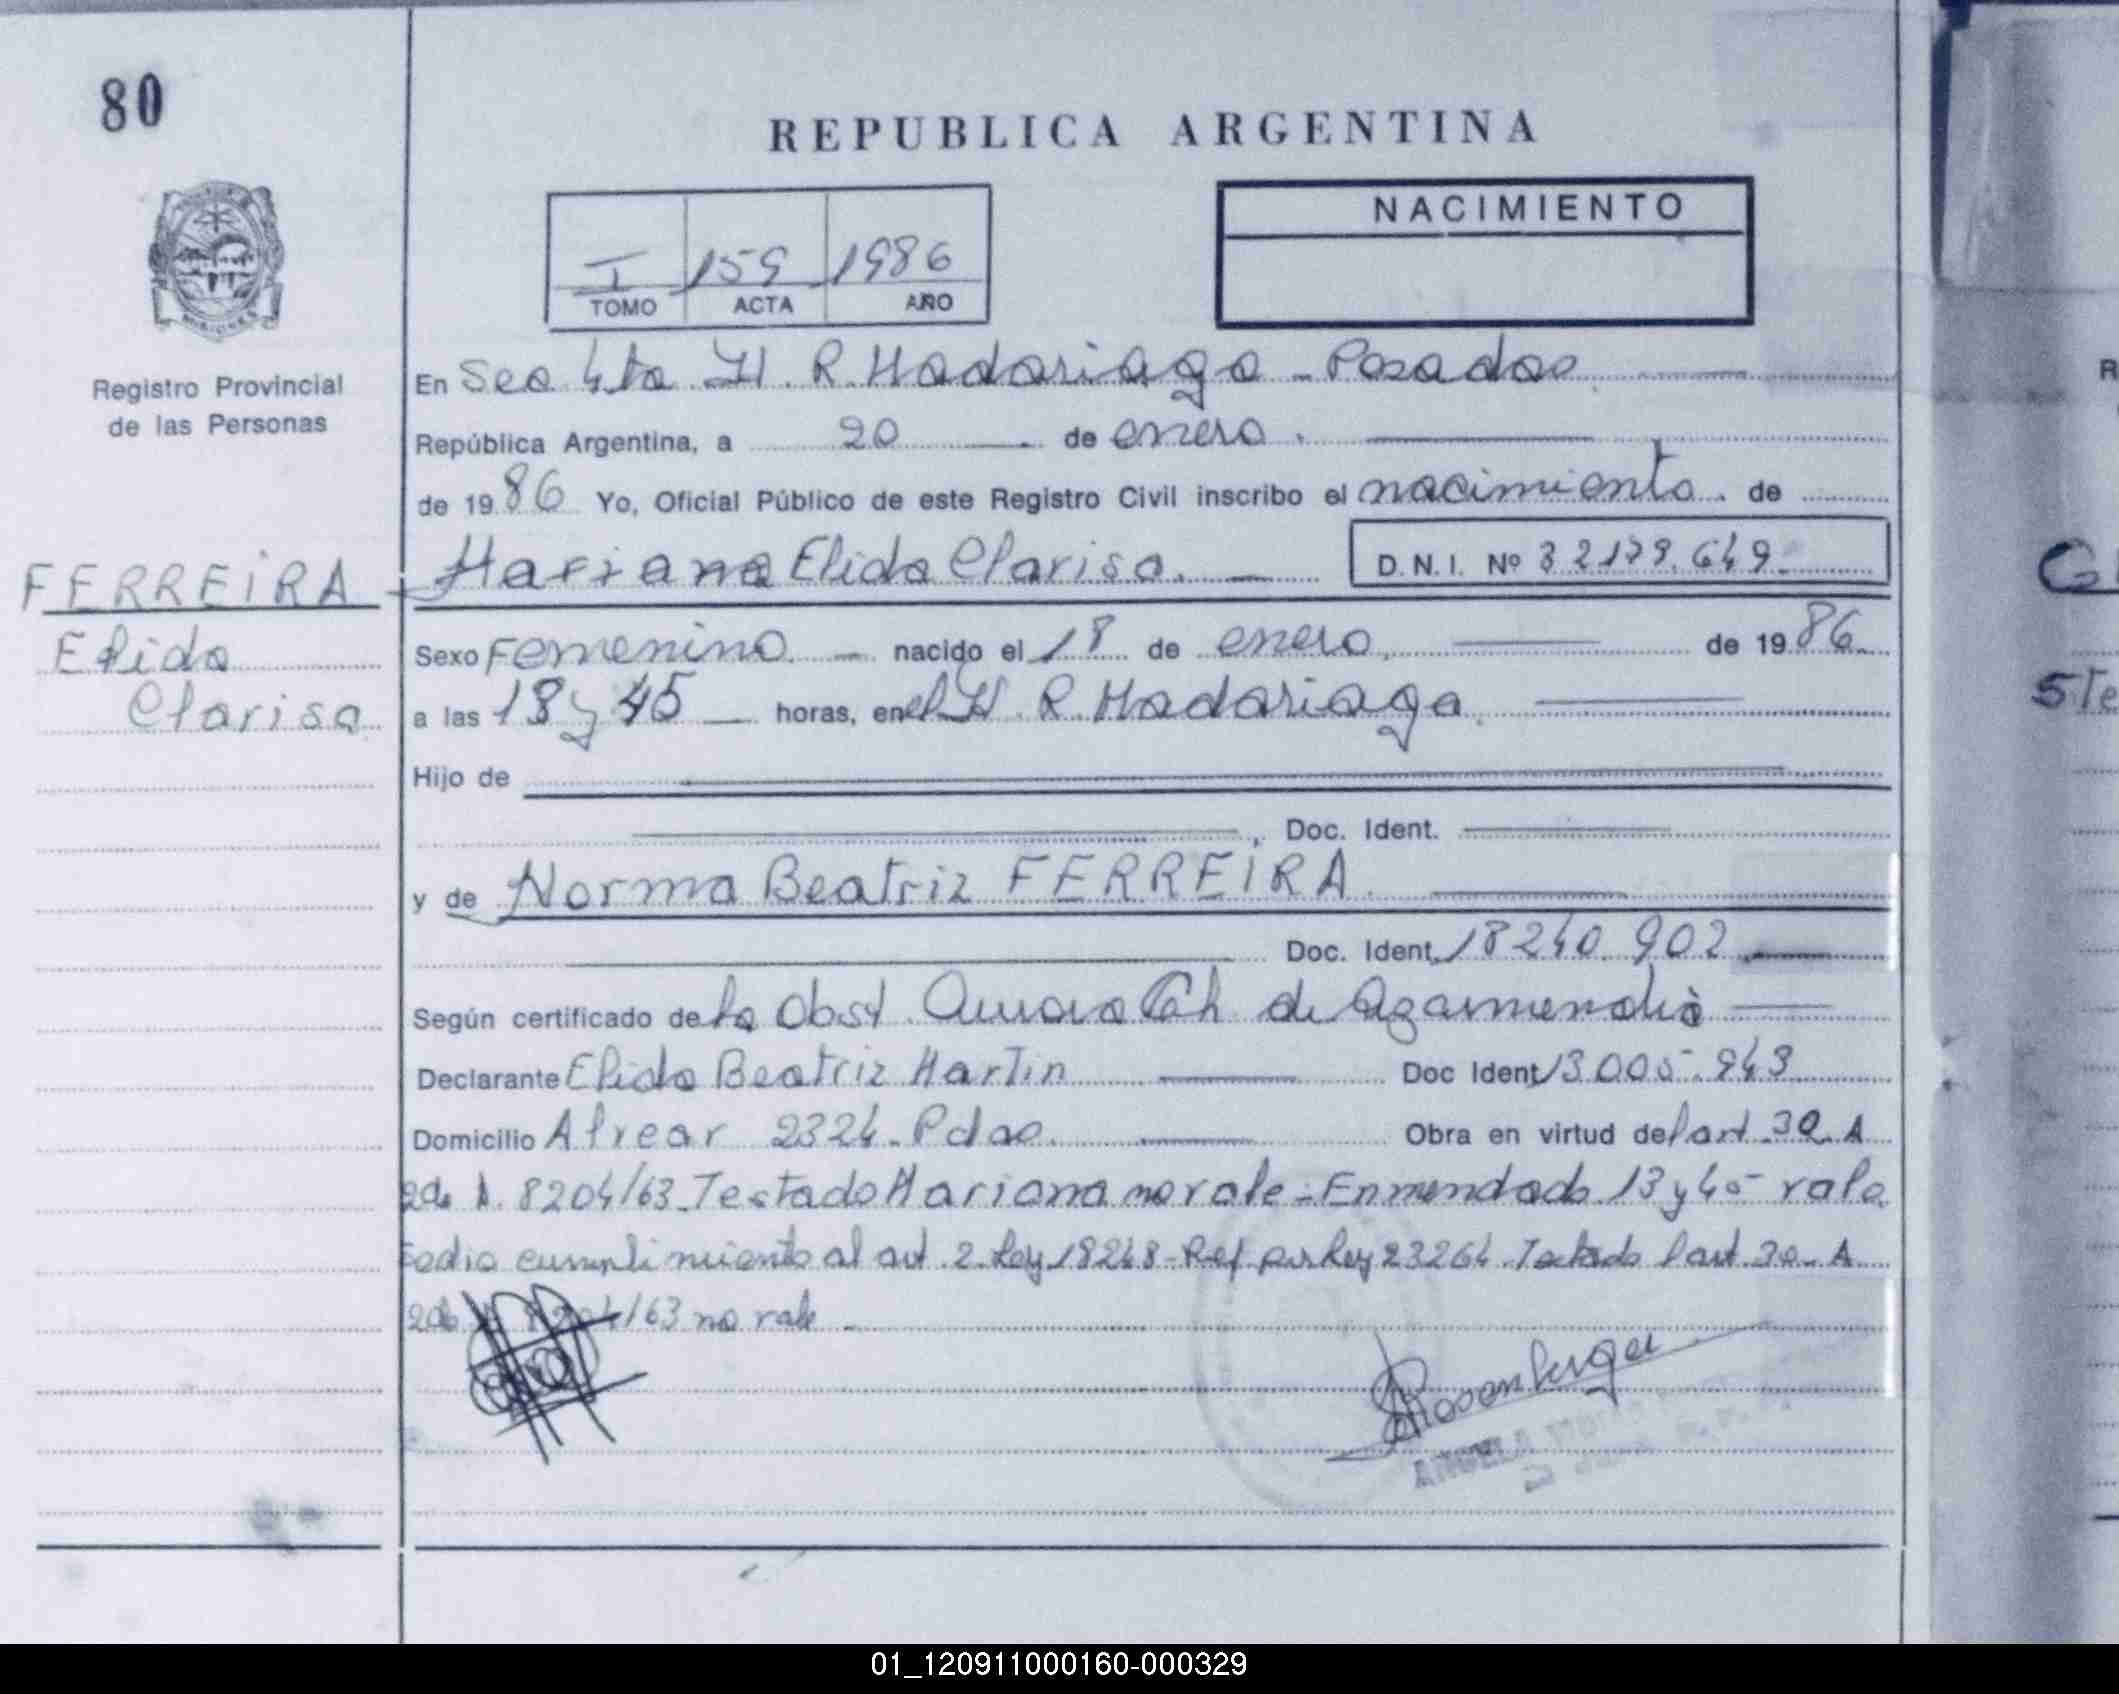 80
REPUBLICA ARGENTINA
NACIMIENTO
I 159 1986
TOMO ACTA AÑO
Registro Provincial
de las Personas
En Sec 4ta H. R. Madariaga - Posadas
República Argentina, a 20 de enero.
de 1986 Yo, Oficial Público de este Registro Civil inscribo el nacimiento. de
FERREIRA
Elida
Clarisa
Mariana Elida Clarisa. D.N.I. Nº 32179.649
Sexo Femenino nacido el 18 de enero, de 1986.
a las 13 y 45 horas, en el H. R. Madariaga.
Hijo de
, Doc. Ident.
y de Norma Beatriz FERREIRA.
Doc. Ident. 18240.902
Según certificado de la Obst. Aurora Ch de
Declarante Elida Beatriz Martin Doc Ident 13005.943
Domicilio Alvear 2324. Pdas. Obra en virtud del art. 30. A
8204/63. Testado Mariana no vale - Enmendado 13 y 45 vale.
cumplimiento al art. 2. Ley 18248 - Ref por Ley 23264. Testado l art. 30. A
8204/63 no vale
ANGELA
G
5Te
R
01_120911000160-000329